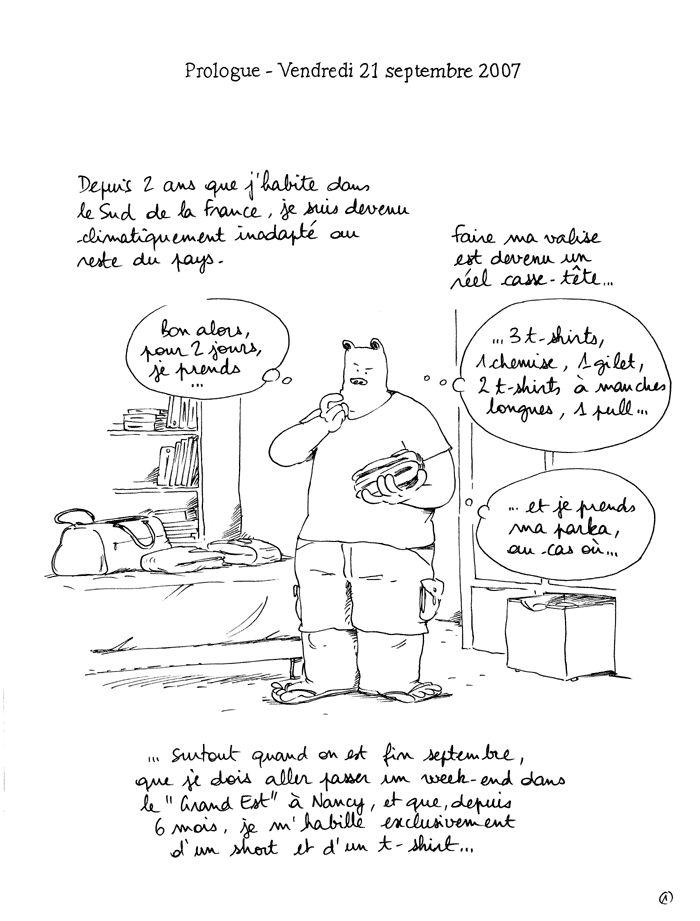 Prologue - Vendredi 21 septembre 2007
Depuis 2 ans que j'habite dans
le Sud de la France, je suis devenu
climatiquement inadapté au
reste du pays.
Faire ma valise
est devenu un
réel casse-tête...
Bon alors,
pour 2 jours,
je prends
...
... 3 t-shirts,
1 chemise, 1 gilet,
2 t-shirts à manches
longues, 1 pull...
... et je prends
ma parka,
au-cas où...
... Surtout quand on est fin septembre,
que je dois aller passer un week-end dans
le "Grand Est" à Nancy, et que, depuis
6 mois, je m'habille exclusivement
d'un short et d'un t-shirt...
1